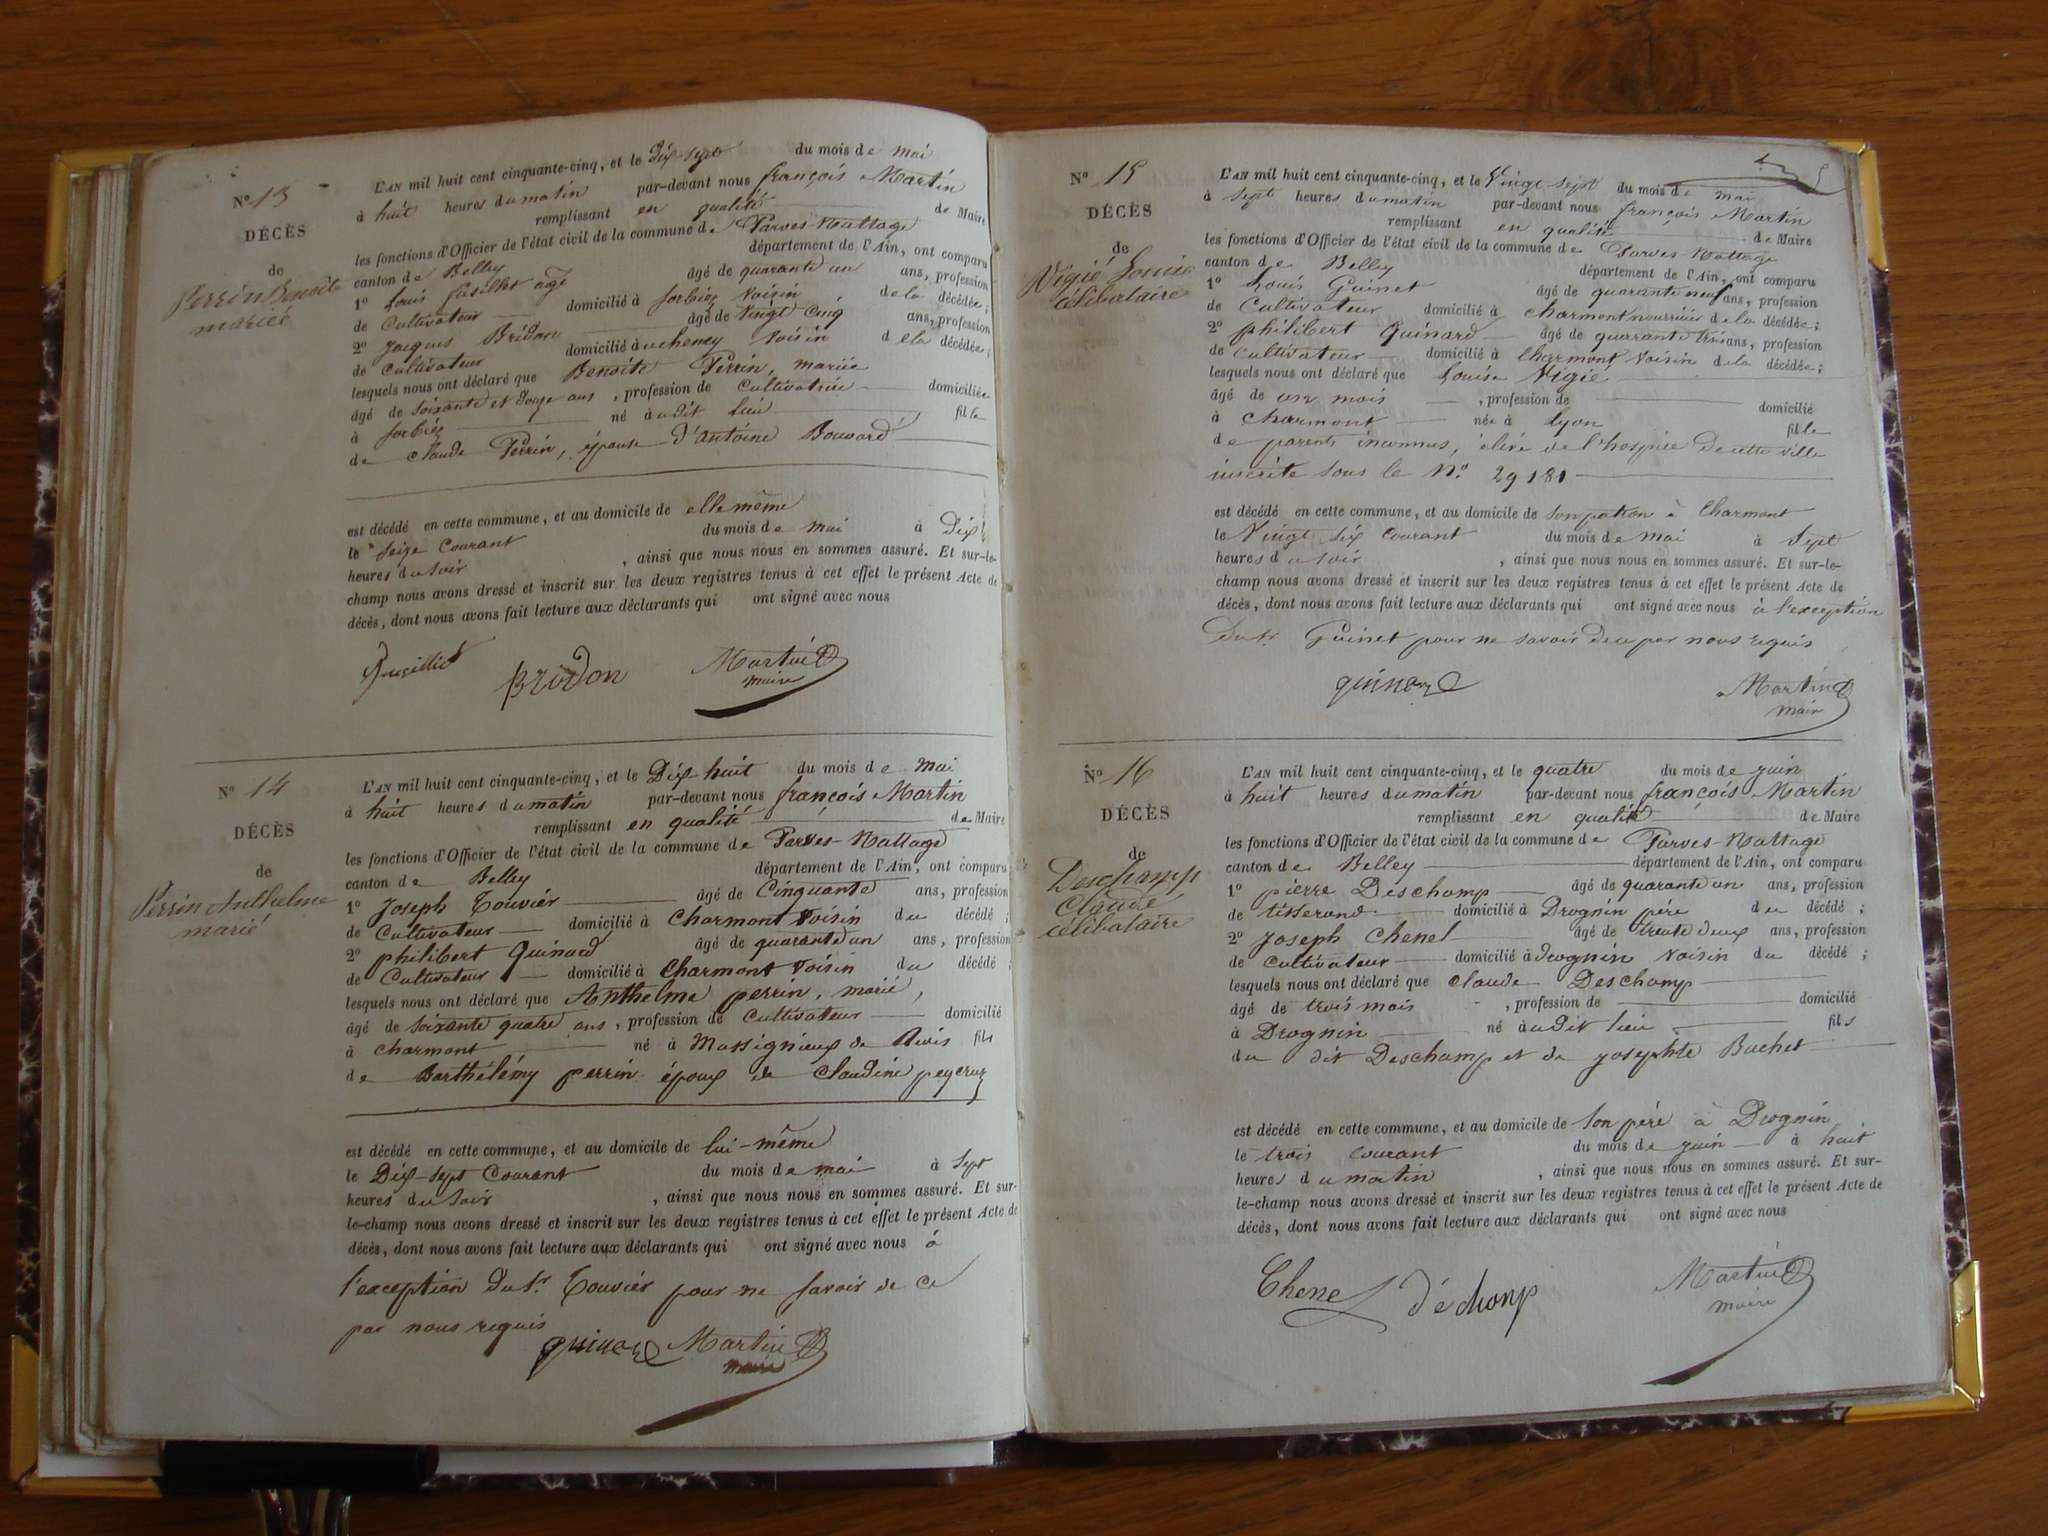 N° 13
DÉCÈS
de
Perrin Benoite
mariée
L'AN mil huit cent cinquante-cinq, et le Dix-sept du mois de mai
à huit heures du matin par-devant nous françois Martin
remplissant en qualité de Maire
les fonctions d'Officier de l'état civil de la commune de Parves-Nattage
canton de Belley département de l'Ain, ont comparu
1° Louis âgé âgé de quarante un ans, profession
de Cultivateur domicilié à Sorbiez voisin de la décédée;
2° Jacques Bridon âgé de Vingt Cinq ans, profession
de Cultivateur domicilié à voisin de la décédée;
lesquels nous ont déclaré que Benoite Perrin, mariée
âgé de soixante et douze ans, profession de Cultivatrice domiciliée
à Sorbiez né à udit lieu fille
de Claude Perrin, épouse d'Antoine Bouvard
est décédé en cette commune, et au domicile de elle même
le seize courant du mois de mai à Dix
heures du soir, ainsi que nous nous en sommes assuré. Et sur-le-
champ nous avons dressé et inscrit sur les deux registres tenus à cet effet le présent Acte de
décès, dont nous avons fait lecture aux déclarants qui ont signé avec nous
BRIDON Martin
maire
N° 14
DÉCÈS
de
Perrin Anthelme
marié
L'AN mil huit cent cinquante-cinq, et le Dix huit du mois de mai
à huit heures du matin par-devant nous françois Martin
remplissant en qualité de Maire
les fonctions d'Officier de l'état civil de la commune de Parves-Nattage
canton de Belley département de l'Ain, ont comparu
1° Joseph Touvier âgé de Cinquante ans, profession
de Cultivateur domicilié à Charmont voisin du décédé;
2° philibert Guinard âgé de quarante un ans, profession
de Cultivateur domicilié à Charmont voisin du décédé;
lesquels nous ont déclaré que Anthelme perrin, marié,
âgé de soixante quatre ans, profession de cultivateur domicilié
à Charmont né à Massignieux de Rives fils
de Barthélémy perrin époux de Claudine
est décédé en cette commune, et au domicile de lui-même
le Dix-sept Courant du mois de mai à sept
heures du soir, ainsi que nous nous en sommes assuré. Et sur-
le-champ nous avons dressé et inscrit sur les deux registres tenus à cet effet le présent Acte de
décès, dont nous avons fait lecture aux déclarants qui ont signé avec nous à
l'exception du sr. Touvier pour ne savoir de ce
par nous requis
guinard Martin
maire
N° 15
DÉCÈS
de
Vigié Louise
célibataire
L'AN mil huit cent cinquante-cinq, et le Vingt sept du mois de mai
à sept heures du matin par-devant nous françois Martin
remplissant en qualité de Maire
les fonctions d'Officier de l'état civil de la commune de Parves-Nattage
canton de Belley département de l'Ain, ont comparu
1° Louis Guinet âgé de quarante neuf ans, profession
de Cultivateur domicilié à Charmont nourricier de la décédée;
2° philibert Guinard âgé de quarante trois ans, profession
de cultivateur domicilié à Charmont voisin de la décédée;
lesquels nous ont déclaré que Louise Vigié
âgé de un mois, profession de domicilié
à Charmont née à Lyon fille
de parents inconnus, élève de l'hospice de cette ville
inscrite sous le N° 29181
est décédé en cette commune, et au domicile de son patron à Charmont
le Vingt six courant du mois de mai à sept
heures du soir, ainsi que nous nous en sommes assuré. Et sur-le-
champ nous avons dressé et inscrit sur les deux registres tenus à cet effet le présent Acte de
décès, dont nous avons fait lecture aux déclarants qui ont signé avec nous à l'exception
Du sr. Guinet pour ne savoir de ce par nous requis
guinard Martin
mair
N° 16
DÉCÈS
de
Deschamp
Claude
célibataire
L'AN mil huit cent cinquante-cinq, et le quatre du mois de juin
à huit heures du matin par-devant nous françois Martin
remplissant en qualité de Maire
les fonctions d'Officier de l'état civil de la commune de Parves-Nattage
canton de Belley département de l'Ain, ont comparu
1° pierre Deschamp âgé de quarante un ans, profession
de tisserand domicilié à Drognin père du décédé;
2° Joseph Chenel âgé de trente deux ans, profession
de cultivateur domicilié à Drognin voisin du décédé;
lesquels nous ont déclaré que Claude Deschamp
âgé de trois mois, profession de domicilié
à Drognin né à udit lieu fils
du dit Deschamp et de Josephte Bachet
est décédé en cette commune, et au domicile de son père à Drognin
le trois courant du mois de juin à huit
heures du matin, ainsi que nous nous en sommes assuré. Et sur-
le-champ nous avons dressé et inscrit sur les deux registres tenus à cet effet le présent Acte de
décès, dont nous avons fait lecture aux déclarants qui ont signé avec nous
Chenel déchamp Martin
maire